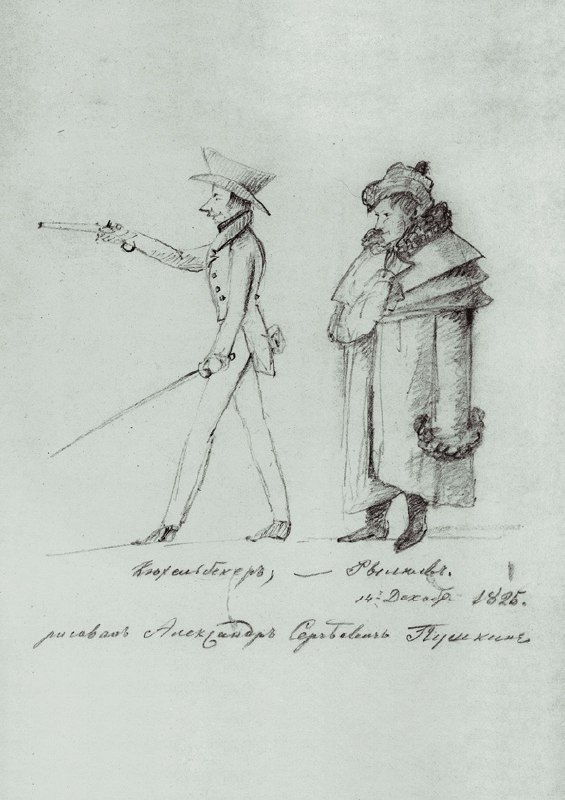 Кюхельбекеръ, — Рылѣевъ.
14го Декабр 1825.
рисовалъ Александръ Сергѣевичъ Пушкинъ